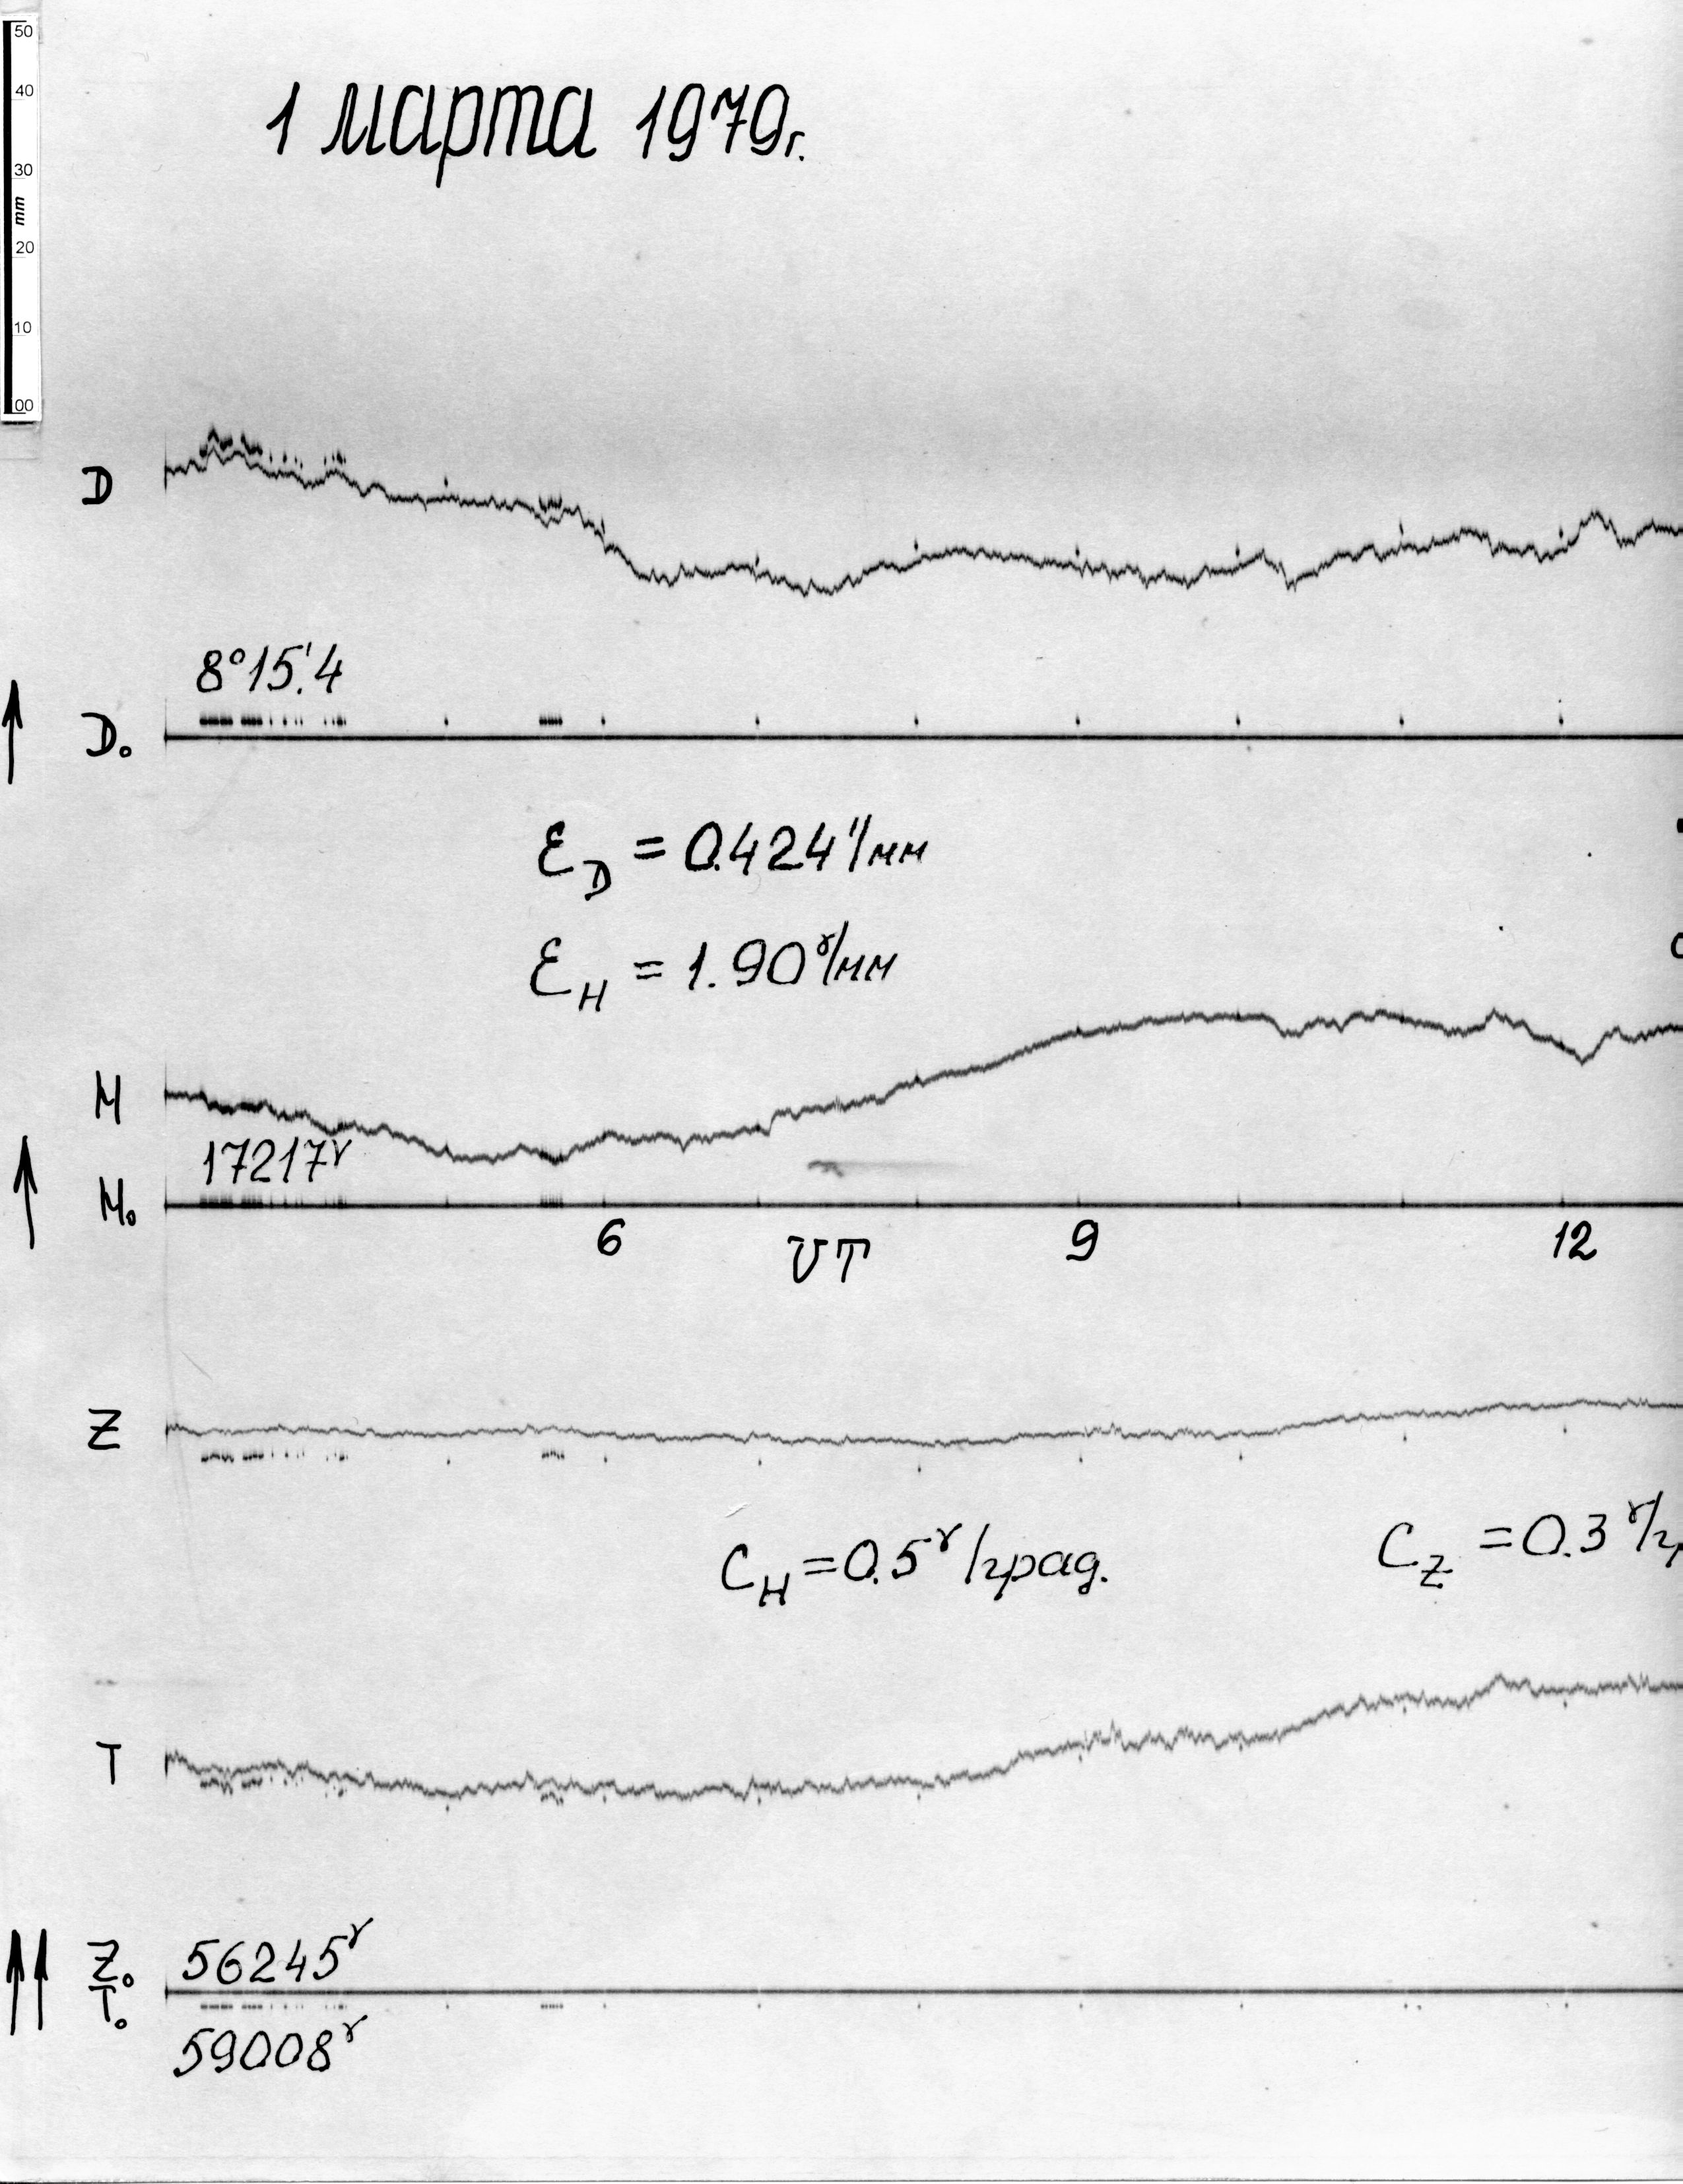 50
40
30
mm
20
10
00
1 марта 1979г.
D
8°15.'4
D₀
Ɛ_D = 0.424'/мм
Ɛ_H = 1.90ᵞ/мм
H
17217ᵞ
H₀
6 UT 9 12
Z
C_H = 0.5ᵞ/град. C_Z = 0.3ᵞ/гр
T
Z₀ 56245ᵞ
T₀
59008ᵞ